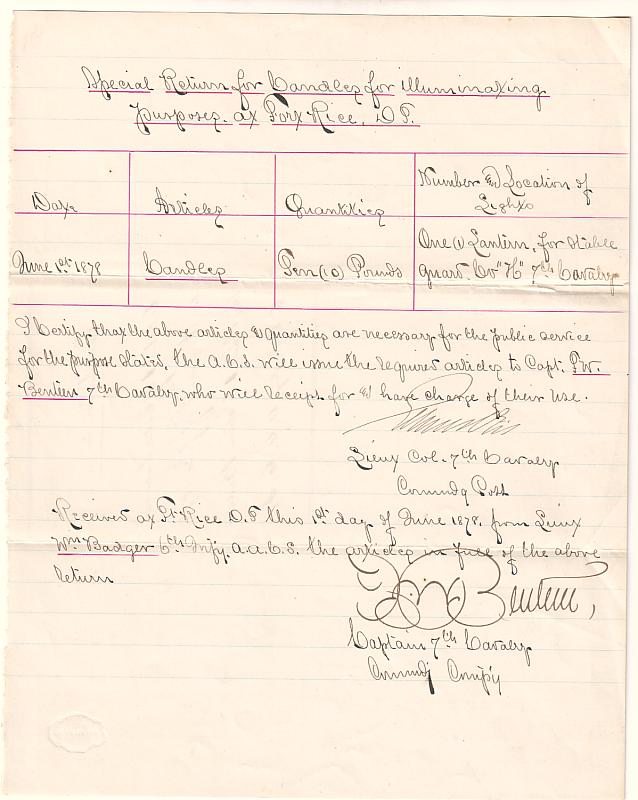 Special Return for Candles for illuminating
purposes. at Fort Rice, D.T.
Date
Articles
Quantities
Number & Location of
Lights
June 1st 1878
Candles
Ten (10) Pounds
One (1) Lantern, for stable
guard. Co "H" 7th Cavalry
I Certify that the above articles & quantities are necessary for the public service
for the purpose stated. The A.C.S. will issue the required articles to Capt. F.W.
Benteen 7th Cavalry, who will receipt for & have charge of their use.
Lieut Col. 7th Cavalry
Commdg Post
Received at Ft. Rice D.T. this 1st day of June 1878, from Lieut
Wm Badger 6th Infy. A.A.C.S. the articles in full of the above
return
FW Benteen,
Captain 7th Cavalry
Commdg Compy